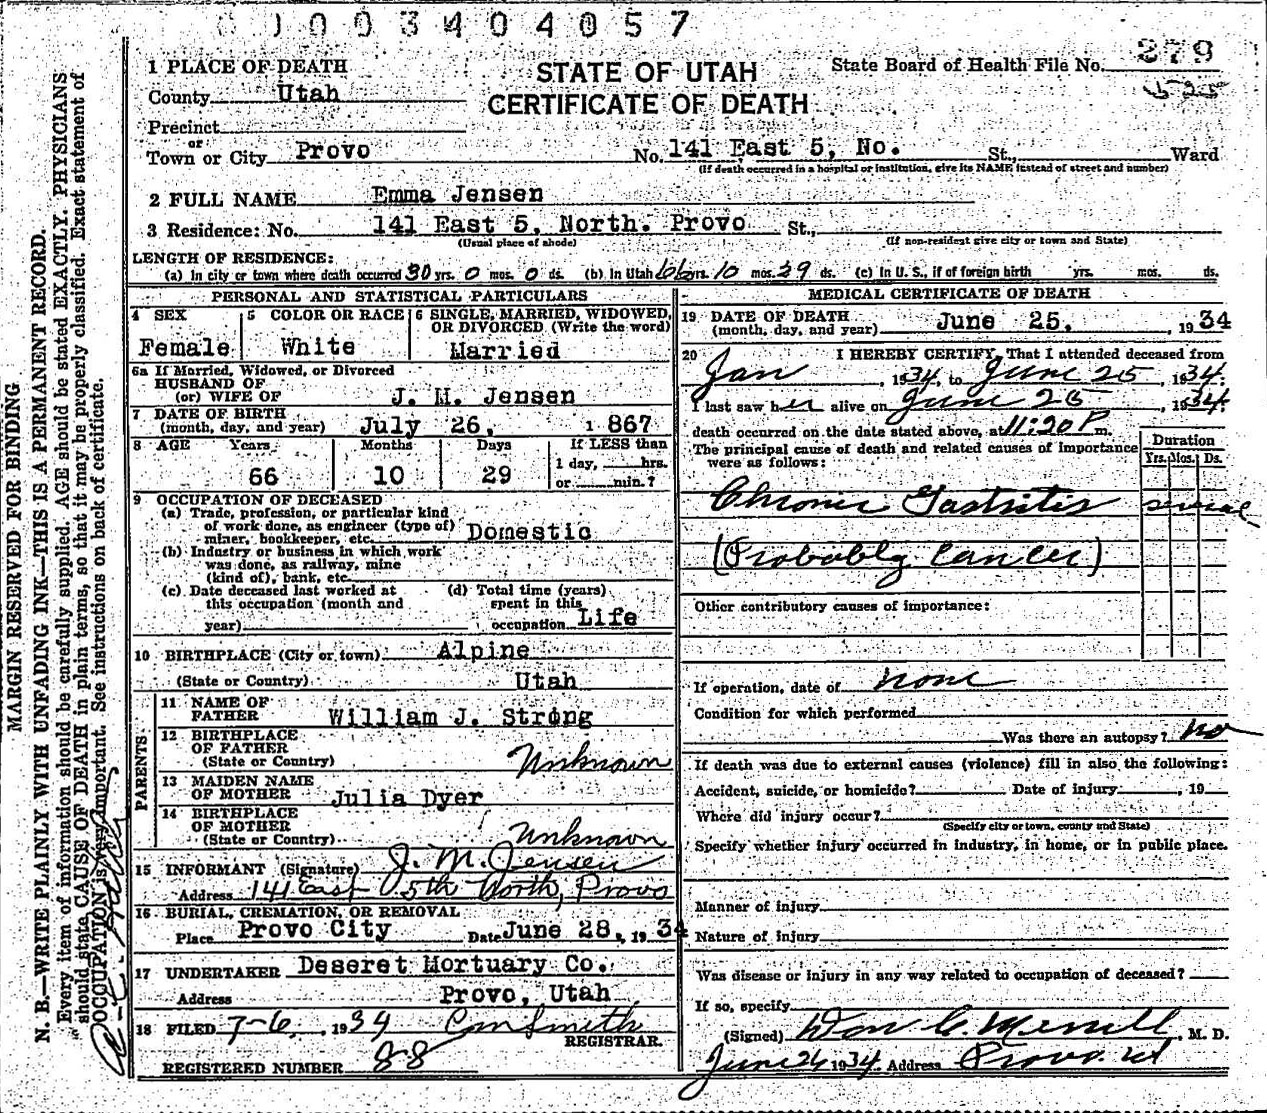 0 1 0 0 3 4 0 4 0 5 7
279
1 PLACE OF DEATH
STATE OF UTAH
State Board of Health File No. 
County Utah
CERTIFICATE OF DEATH
Precinct
or
Town or City Provo No. 141 East 5, No. St., Ward
(If death occurred in a hospital or institution, give its NAME instead of street and number)
2 FULL NAME Emma Jensen
3 Residence: No. 141 East 5, North. Provo St.,
(Usual place of abode) (If non-resident give city or town and State)
LENGTH OF RESIDENCE:
(a) In city or town where death occurred 30 yrs. 0 mos. 0 ds. (b) In Utah 66 yrs. 10 mos. 29 ds. (c) In U. S., if of foreign birth yrs. mos. ds.
PERSONAL AND STATISTICAL PARTICULARS
4 SEX
Female
5 COLOR OR RACE
White
6 SINGLE, MARRIED, WIDOWED,
OR DIVORCED (Write the word)
Married
6a If Married, Widowed, or Divorced
HUSBAND OF
(or) WIFE OF J. M. Jensen
7 DATE OF BIRTH
(month, day, and year) July 26, 1 867
8 AGE Years Months Days If LESS than
66 10 29
1 day, hrs.
or min.?
9 OCCUPATION OF DECEASED
(a) Trade, profession, or particular kind
of work done, as engineer (type of)
miner, bookkeeper, etc. Domestic
(b) Industry or business in which work
was done, as railway, mine
(kind of), bank, etc.
(c) Date deceased last worked at
this occupation (month and
year)
(d) Total time (years)
spent in this
occupation Life
10 BIRTHPLACE (City or town) Alpine
(State or Country) Utah
PARENTS
11 NAME OF
FATHER William J. Strong
12 BIRTHPLACE
OF FATHER
(State or Country) Unknown
13 MAIDEN NAME
OF MOTHER Julia Dyer
14 BIRTHPLACE
OF MOTHER
(State or Country) Unknown
15 INFORMANT (Signature) J. M. Jensen
Address 141 East 5th North, Provo
16 BURIAL, CREMATION, OR REMOVAL
Place Provo City Date June 28, 19 34
17 UNDERTAKER Deseret Mortuary Co.
Address Provo, Utah
18 FILED 7-6, 1934
REGISTRAR.
REGISTERED NUMBER 88
MEDICAL CERTIFICATE OF DEATH
19 DATE OF DEATH
(month, day, and year) June 25, 19 34
20 I HEREBY CERTIFY, That I attended deceased from
Jan, 1934, to June 25, 1934.
I last saw her alive on June 25, 1934.
death occurred on the date stated above, at 11:20 P m.
The principal cause of death and related causes of importance
were as follows:
Duration
Yrs. Mos. Ds.
Chronic Gastritis several
(Probably Cancer)
Other contributory causes of importance:
If operation, date of none
Condition for which performed
Was there an autopsy? no
If death was due to external causes (violence) fill in also the following:
Accident, suicide, or homicide? Date of injury, 19
Where did injury occur?
(Specify city or town, county and State)
Specify whether injury occurred in industry, in home, or in public place.
Manner of injury
Nature of injury
Was disease or injury in any way related to occupation of deceased?
If so, specify
(Signed) Don C. Merrill, M. D.
June 26 1934. Address Provo. Ut
MARGIN RESERVED FOR BINDING
N. B.—WRITE PLAINLY WITH UNFADING INK—THIS IS A PERMANENT RECORD.
Every item of information should be carefully supplied. AGE should be stated EXACTLY. PHYSICIANS
should state CAUSE OF DEATH in plain terms, so that it may be properly classified. Exact statement of
OCCUPATION is very important. See instructions on back of certificate.